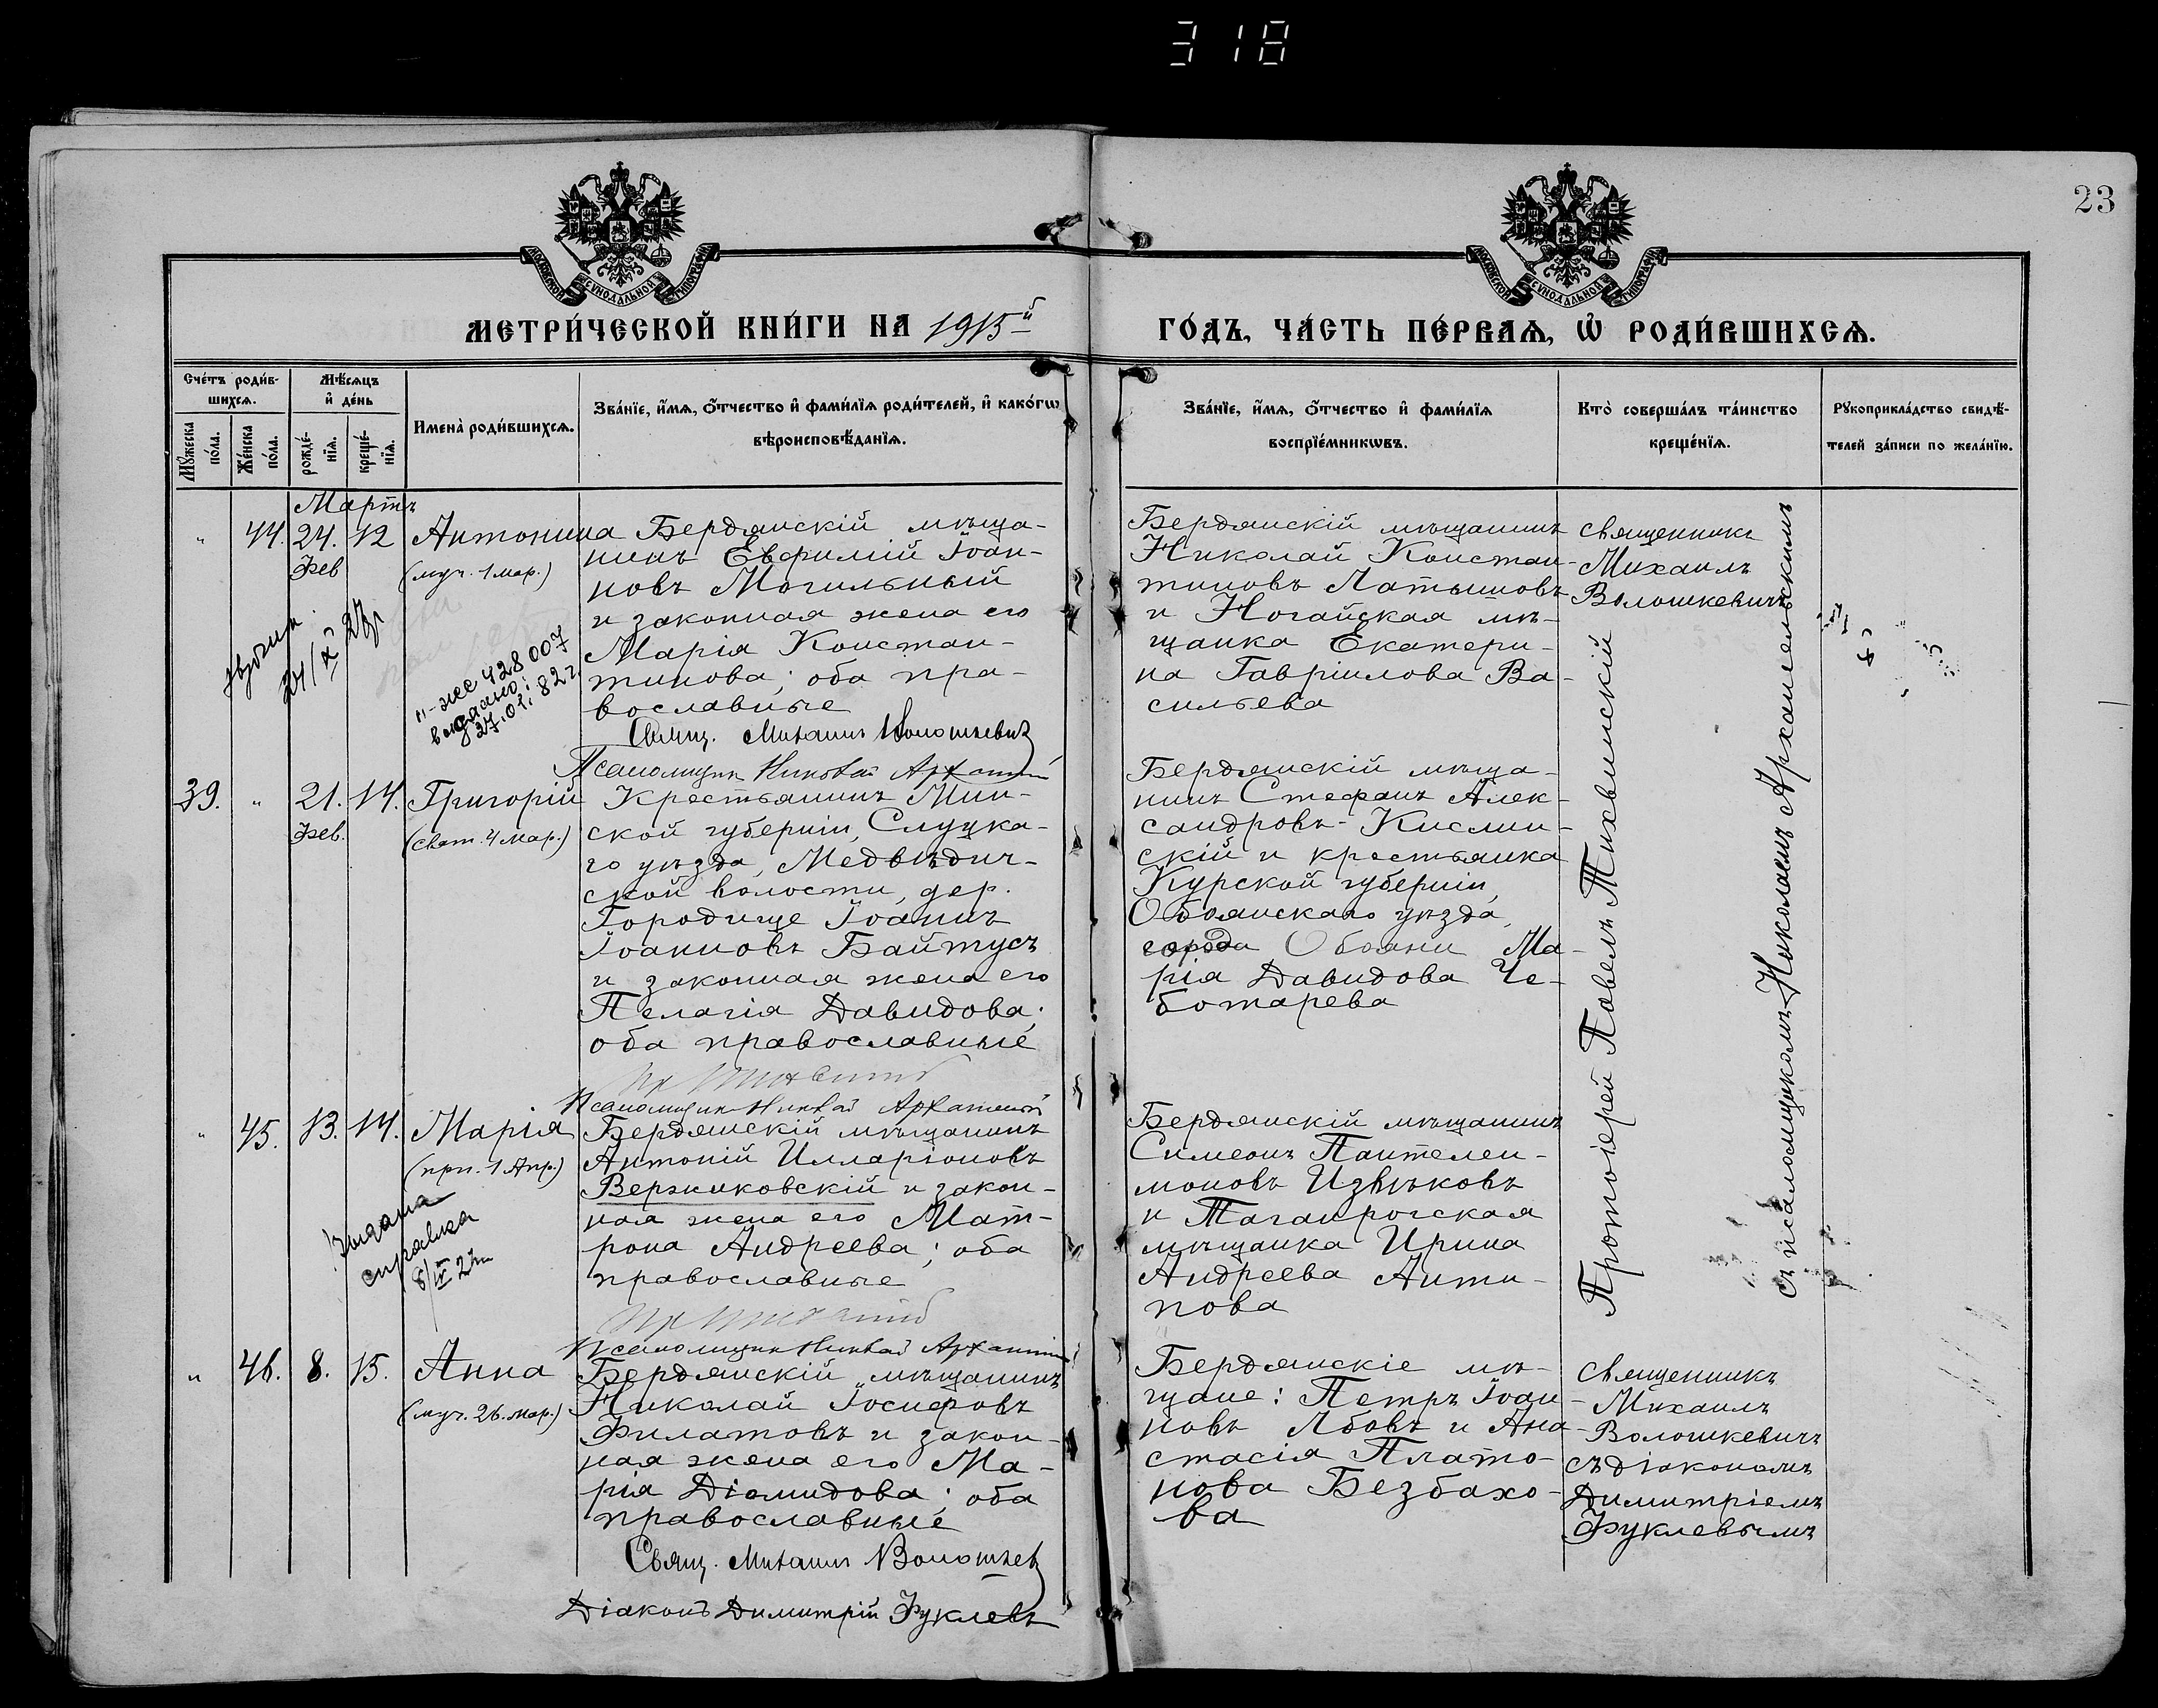 318
23
МОСКОВСКОЙ СѴНОДАЛЬНОЙ ТИПОГРАФІИ
МОСКОВСКОЙ СѴНОДАЛЬНОЙ ТИПОГРАФІИ
МЕТРИ́ЧЕСКОЙ КНИ́ГИ НА 1915й
ГО́ДЪ, ЧА́СТЬ ПЕ́РВАѦ, Ѡ҆ РОДИ́ВШИХСѦ.
Сче́тъ роди́в-
шихсѧ.
Мѣ́сѧцъ
и҆ де́нь
Мꙋ́жеска
по́ла.
Же́нска
по́ла.
рожде́-
нїѧ.
креще́-
нїѧ.
Имена̀ роди́вшихсѧ.
Зва́нїе, и҆́мѧ, ѻ҆́тчество и҆ фами́лїѧ роди́телей, и҆ како́гѡ
вѣроисповѣ́данїѧ.
Зва́нїе, и҆́мѧ, ѻ҆́тчество и҆ фами́лїѧ
воспрїе́мникѡвъ.
Кто̀ соверша́лъ та́инство
креще́нїѧ.
Рꙋкоприкла́дство свидѣ́-
телей за́писи по жела́нїю.
Мартъ
" 44. 24. 12 Антонина
Фев
(муч. 1 мар.)
Бердянскій мѣща-
нинъ Евфимій Іоан-
новъ Могильный
и законная жена его
Марія Констан-
тинова; оба пра-
вославные
Свящ. Михаилъ Волошкевичъ
Псаломщик Николай
428007
выдано:
27.01.82г.
Бердянскій мѣщанинъ
Николай Констан-
тиновъ Латышовъ
и Ногайская мѣ-
щанка Екатери-
на Гавріилова Ва-
сильева
Священникъ
Михаилъ
Волошкевичъ
39. " 21. 14. Григорій
Фев.
(свят. 4 мар.)
Крестьянинъ Мин-
ской губерніи, Слуцка-
го уѣзда, Медвѣдич-
ской волости, дер.
Городище Іоаннъ
Іоанновъ Байтусъ
и законная жена его
Пелагія Давидова;
оба православные
Псаломщик Николай
Бердянскій мѣща-
нинъ Стефанъ Алек-
сандровъ Кислин-
скій и крестьянка
Курской губерніи,
Обоянскаго уѣзда,
города Обояни Ма-
рія Давидова Че-
ботарева
Протоіерей Павелъ Тихвинскій
съ псаломщикомъ Николаемъ Архангельскимъ
" 45. 13. 14. Марія
(прп. 1 Апр.)
Выдана
справка
Бердянскій мѣщанинъ
Антоній Илларіоновъ
Вержиковскій и закон-
ная жена его Мат-
рона Андреева; оба
православные
Псаломщик Николай
Бердянскій мѣщанинъ
Симеонъ Пантелеи-
моновъ Извѣковъ
и Таганрогская
мѣщанка Ирина
Андреева Анти-
пова
" 46. 8. 15. Анна
(муч. 26. мар.)
Бердянскій мѣщанинъ
Николай Іосифовъ
Филатовъ и закон-
ная жена его Ма-
рія Діомидова; оба
православные
Свящ. Михаилъ Волошкевичъ
Діаконъ Димитрій Фуклевъ
Бердянскіе мѣ-
щане: Петръ Іоан-
новъ Лбовъ и Ана-
стасія Плато-
нова Безбахо-
ва
Священникъ
Михаилъ
Волошкевичъ
съ діакономъ
Димитріемъ
Фуклевымъ